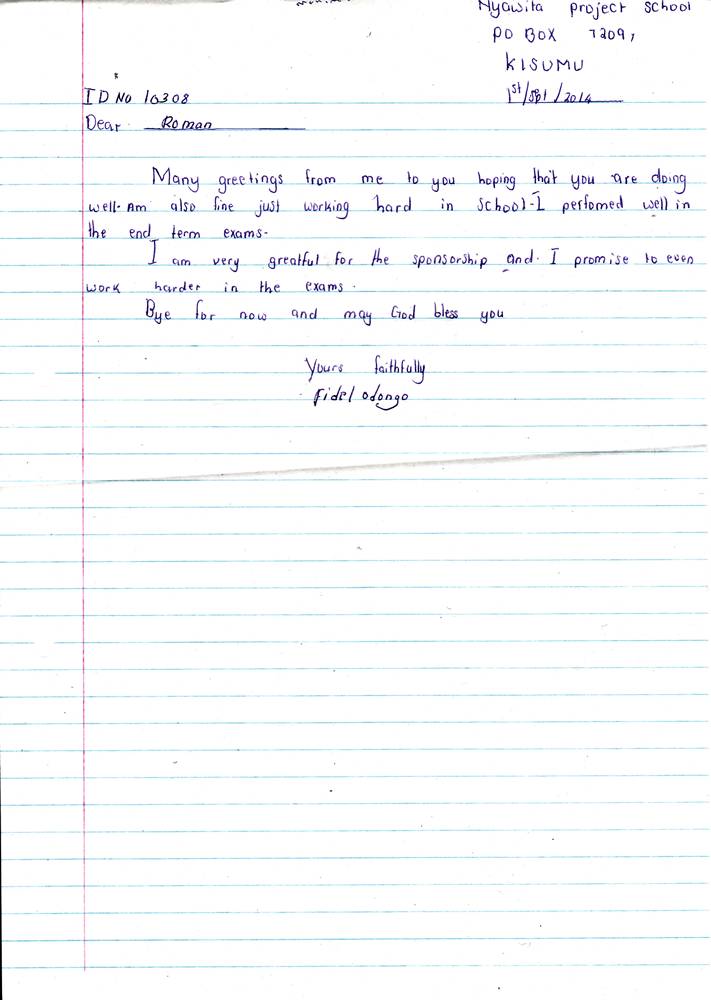 Nyawita project school
PO BOX 7209,
KISUMU
ID No 10308
1st/sbt/2014
Dear Roman
Many greetings from me to you hoping that you are doing
well. Am also fine just working hard in school. I perfomed well in
the end term exams.
I am very greatful for the sponsorship and. I promise to even
work harder in the exams.
Bye for now and may God bless you
Yours faithfully
Fidel odongo